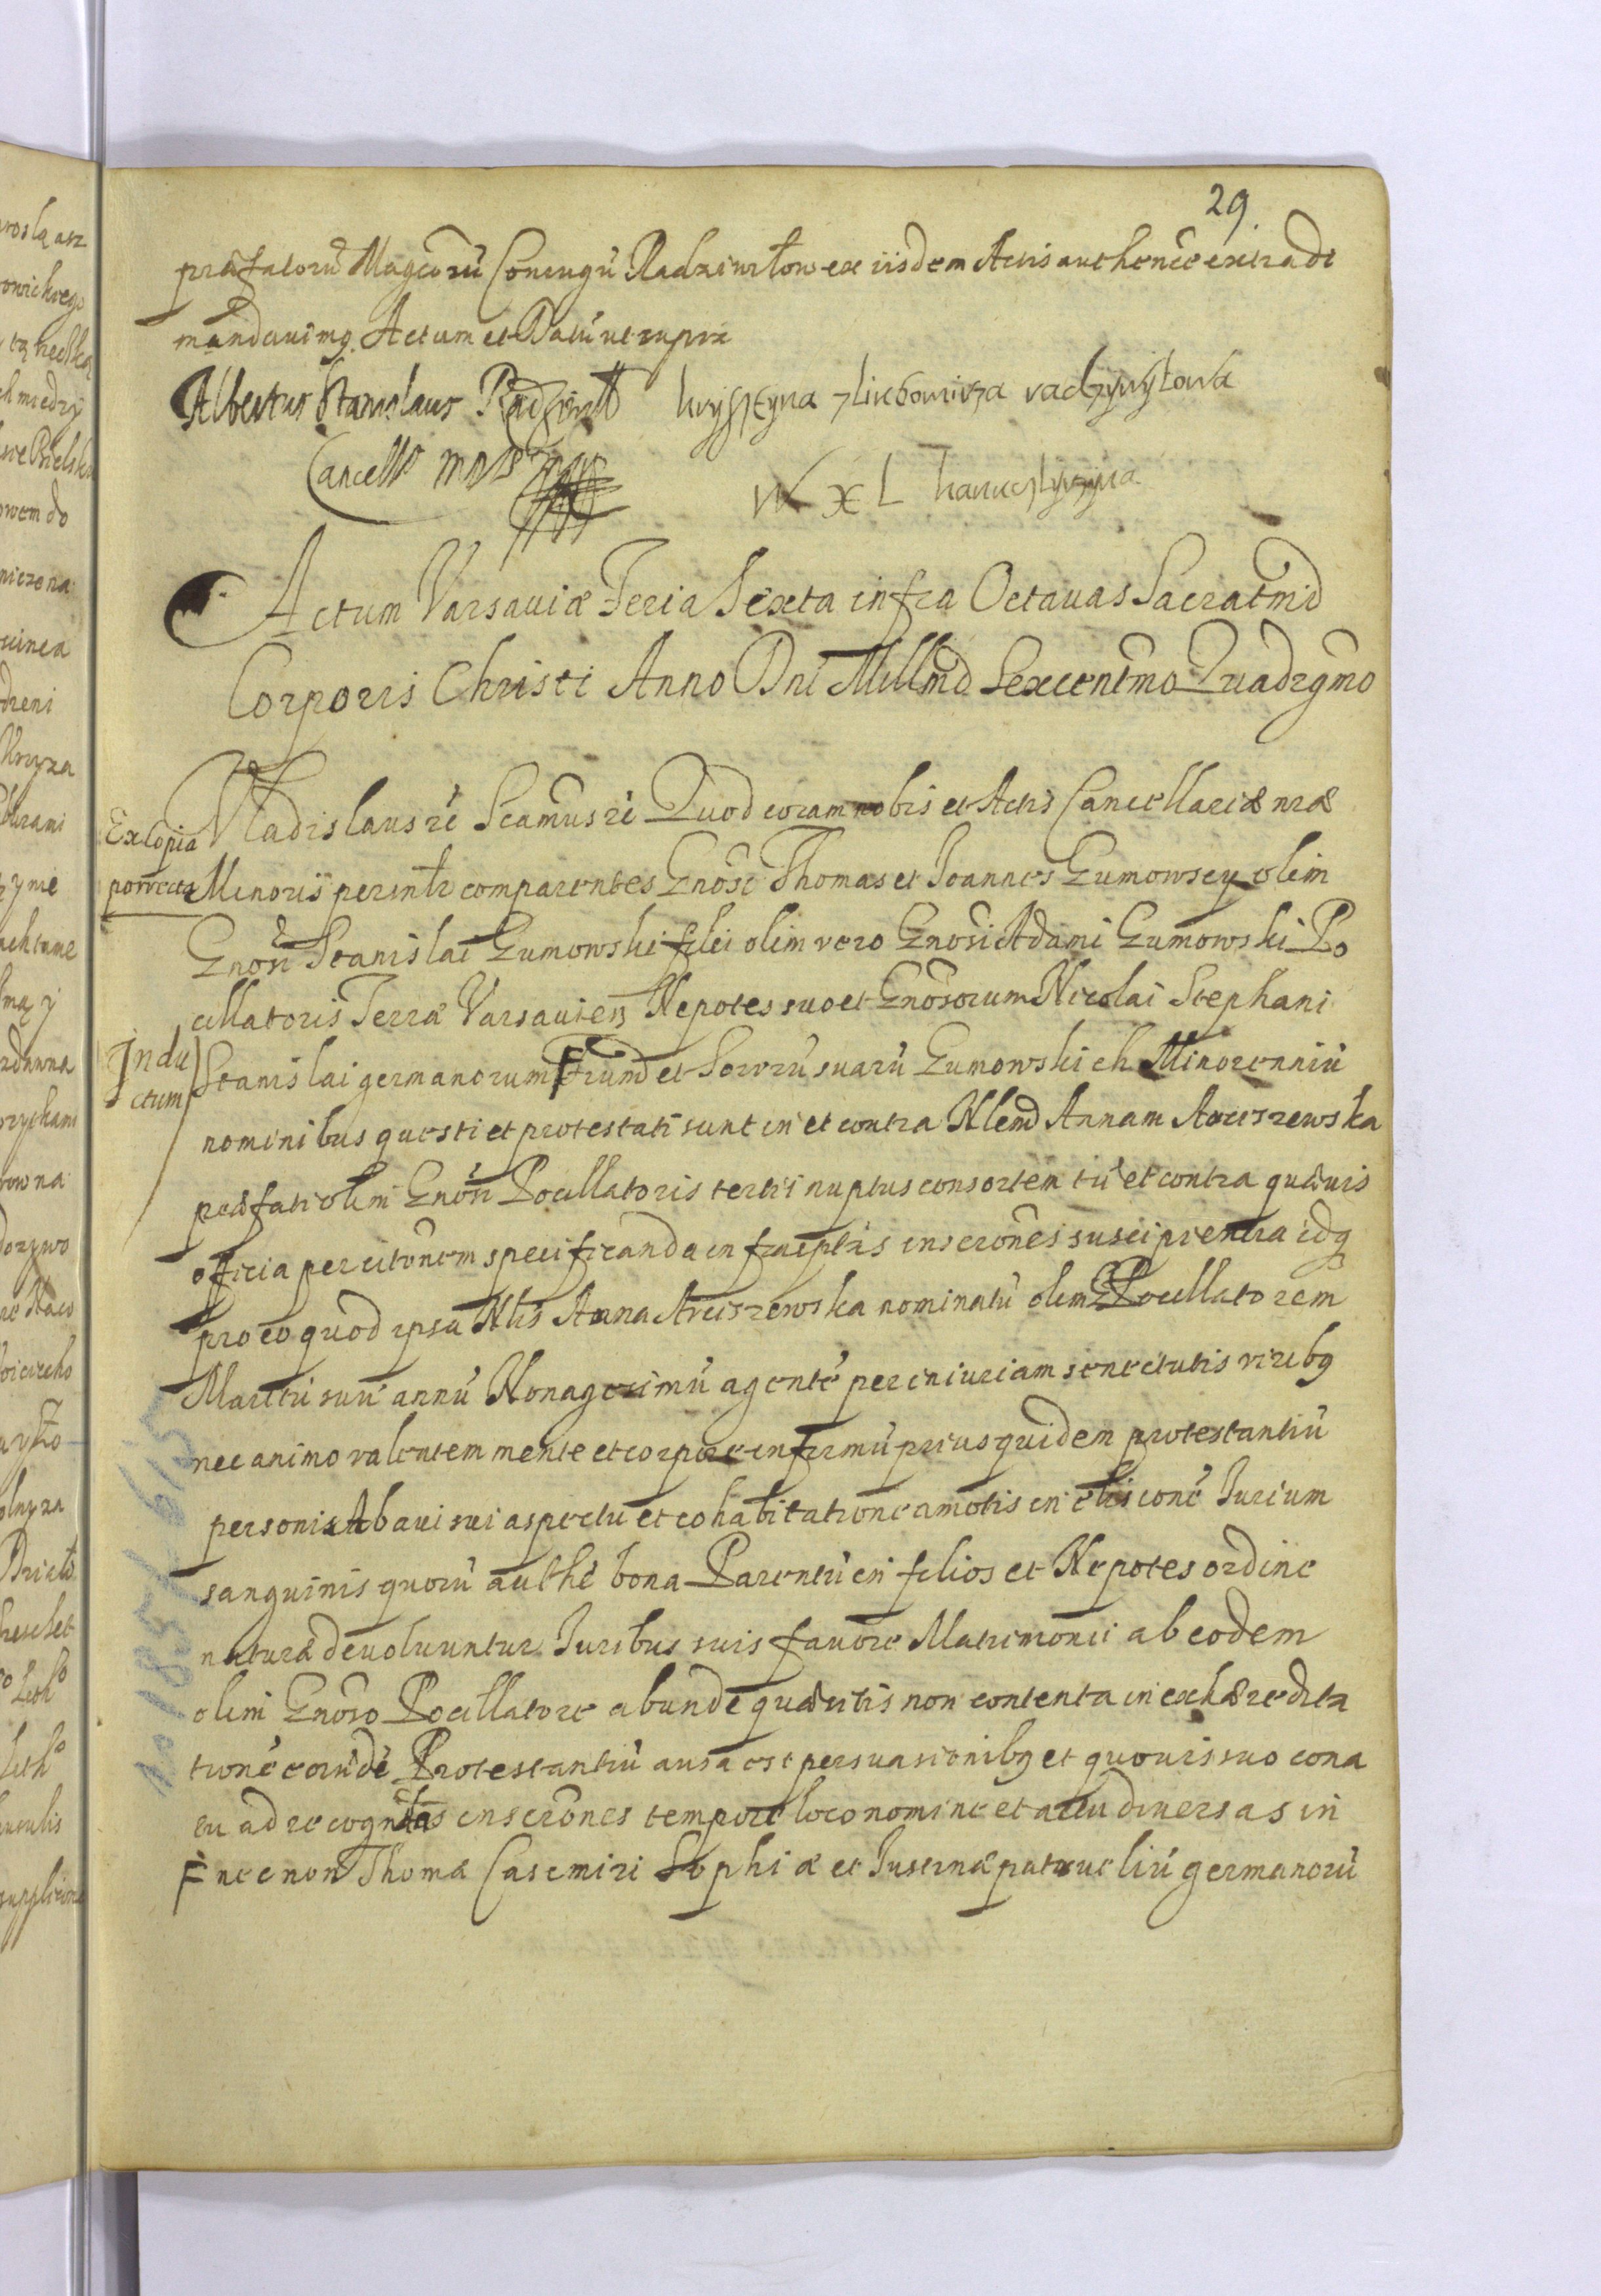 29.
præfatorū Magcorū Coniugū Radziwiłow ex iisdem Actis authence extrade
mandauimq. Actum et Datū ut supra
Albertus Stanislaus Radziwił krysztyna zlubomirza radzywyłowa
Cancells W X L kanuclyrzyna
Actum Varsauiæ Feria Sexta infra Octauas Sacratmi
Corporis Christi Anno Dni Millmo Sexcentmo Quadrgmo
Ex Copia
porrecta
Vladislaus rc Scamus rc Quod coram nobis et Actis Cancellariæ nræ
Minoris perintr comparentes Gnosi Thomas et Joannes Gumowscy olim
Gnosi Stanislai Gumowski filii olim vero Gnosi Adami Gumowski Po
cillatoris Terræ Varsauien Nepotes suo et Gnosorum Nicolai Stephani
Indu
ctum
Stanislai germanorum F Frum et Sororū suarū Gumowskich Minorenniū
nominibus questi et protestati sunt in et contra Nlem Annam Arciszewska
præfati olim Gnosi Pocillatoris tertii nuptus consortem tū et contra quæuis
officia per citonem specificanda infrascptas inscrones suscipientia idq
pro eo quod ipsa Nlis Anna Arciszewska nominatū olim G Pocillatorem
Maritū suū annū Nonagesimū agentē per iniuriam senectutis viribq
nec animo valentem mente et corpore infirmū prius quidem protestantiū
personis Ab aui sui aspectu et cohabitatione amotis in elisionē Iurium
sanguinis quorū authē bona Parentū in filios et Nepotes ordine
naturæ deuoluuntur Iuribus suis fauore Matrimonii ab eodem
olim Gnoso Pocillatore abunde quæsitis non contenta in exhæredita
tionē eorūdē Protestantiū ausa est persuasionibq et quouis suo cona
tu ad recognitas inscrones tempore loco nomine et actu diuersas in
F necnon Thomæ Casimiri Sophiæ et Iustinæ patrueliū germanorū